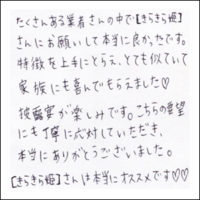 たくさんある業者さんの中で【きらきら姫】
さんにお願いして本当に良かったです。
特徴を上手にとらえ、とても似ていて
家族にも喜んでもらえました♡
披露宴が楽しみです。こちらの要望
にも丁寧に応対していただき、
本当にありがとうございました。
【きらきら姫】さんは本当にオススメです♡♡